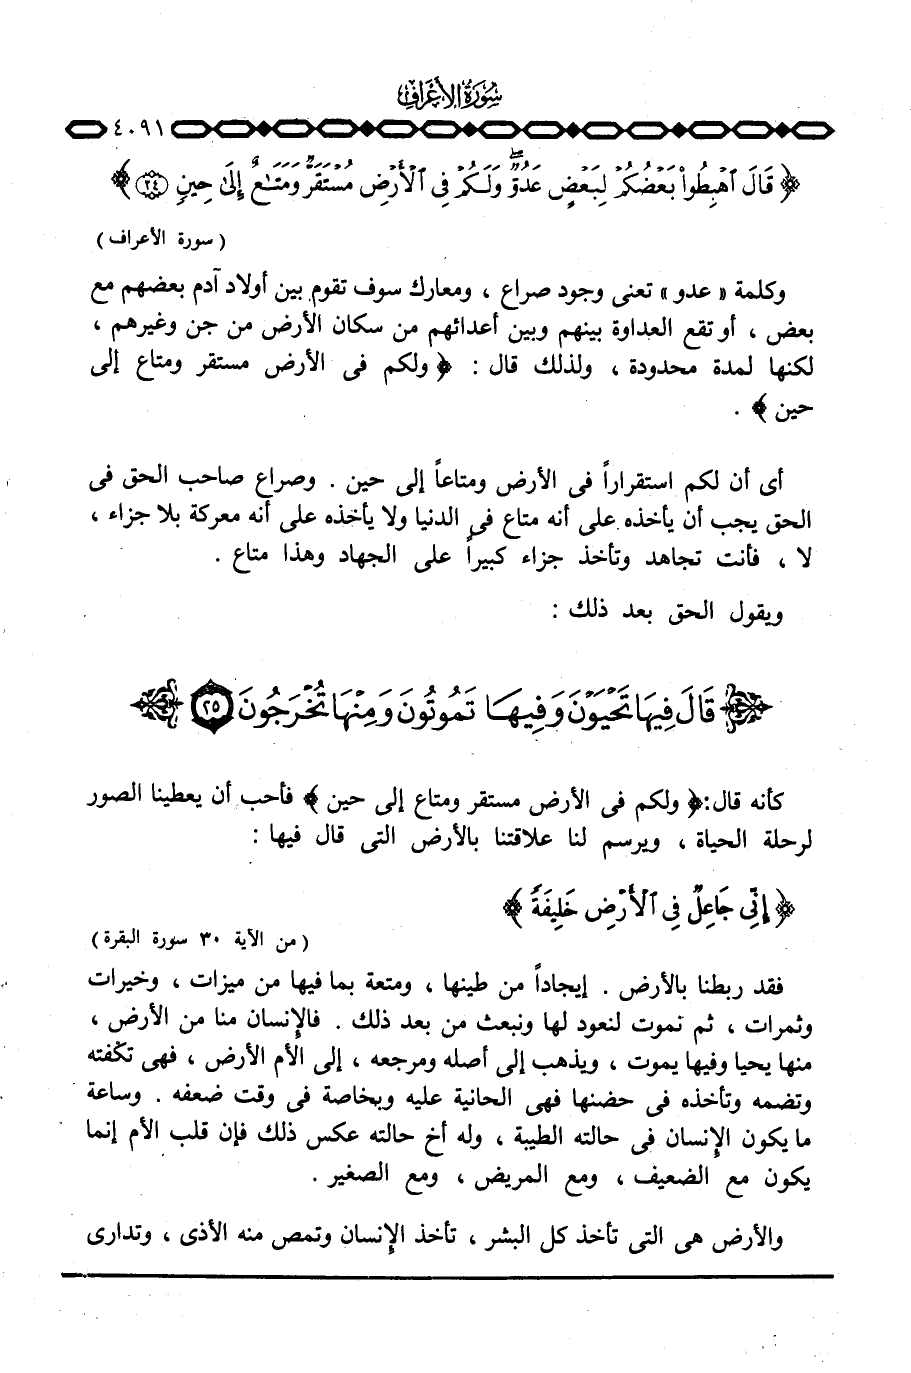 سُورَةُ الأَعْرَافِ
٤٠٩١
﴿ قَالَ ٱهْبِطُوا۟ بَعْضُكُمْ لِبَعْضٍ عَدُوٌّ ۖ وَلَكُمْ فِى ٱلْأَرْضِ مُسْتَقَرٌّ وَمَتَـٰعٌ إِلَىٰ حِينٍ ٢٤ ﴾
( سورة الأعراف )
وكلمة « عدو » تعنى وجود صراع ، ومعارك سوف تقوم بين أولاد آدم بعضهم مع
بعض ، أو تقع العداوة بينهم وبين أعدائهم من سكان الأرض من جن وغيرهم ،
لكنها لمدة محدودة ، ولذلك قال : ﴿ ولكم فى الأرض مستقر ومتاع إلى
حين ﴾ .
أى أن لكم استقراراً فى الأرض ومتاعاً إلى حين . وصراع صاحب الحق فى
الحق يجب أن يأخذه على أنه متاع فى الدنيا ولا يأخذه على أنه معركة بلا جزاء ،
لا ، فأنت تجاهد وتأخذ جزاء كبيراً على الجهاد وهذا متاع .
ويقول الحق بعد ذلك :
﴿ قَالَ فِيهَا تَحْيَوْنَ وَفِيهَا تَمُوتُونَ وَمِنْهَا تُخْرَجُونَ ٢٥ ﴾
كأنه قال:﴿ ولكم فى الأرض مستقر ومتاع إلى حين ﴾ فأحب أن يعطينا الصور
لرحلة الحياة ، ويرسم لنا علاقتنا بالأرض التى قال فيها :
﴿ إِنِّى جَاعِلٌ فِى ٱلْأَرْضِ خَلِيفَةً ﴾
( من الآية ٣٠ سورة البقرة )
فقد ربطنا بالأرض . إيجاداً من طينها ، ومتعة بما فيها من ميزات ، وخيرات
وثمرات ، ثم نموت لنعود لها ونبعث من بعد ذلك . فالإنسان منا من الأرض ،
منها يحيا وفيها يموت ، ويذهب إلى أصله ومرجعه ، إلى الأم الأرض ، فهى تكْفته
وتضمه وتأخذه فى حضنها فهى الحانية عليه وبخاصة فى وقت ضعفه . وساعة
ما يكون الإنسان فى حالته الطيبة ، وله أخ حالته عكس ذلك فإن قلب الأم إنما
يكون مع الضعيف ، ومع المريض ، ومع الصغير .
والأرض هى التى تأخذ كل البشر ، تأخذ الإنسان وتمص منه الأذى ، وتدارى